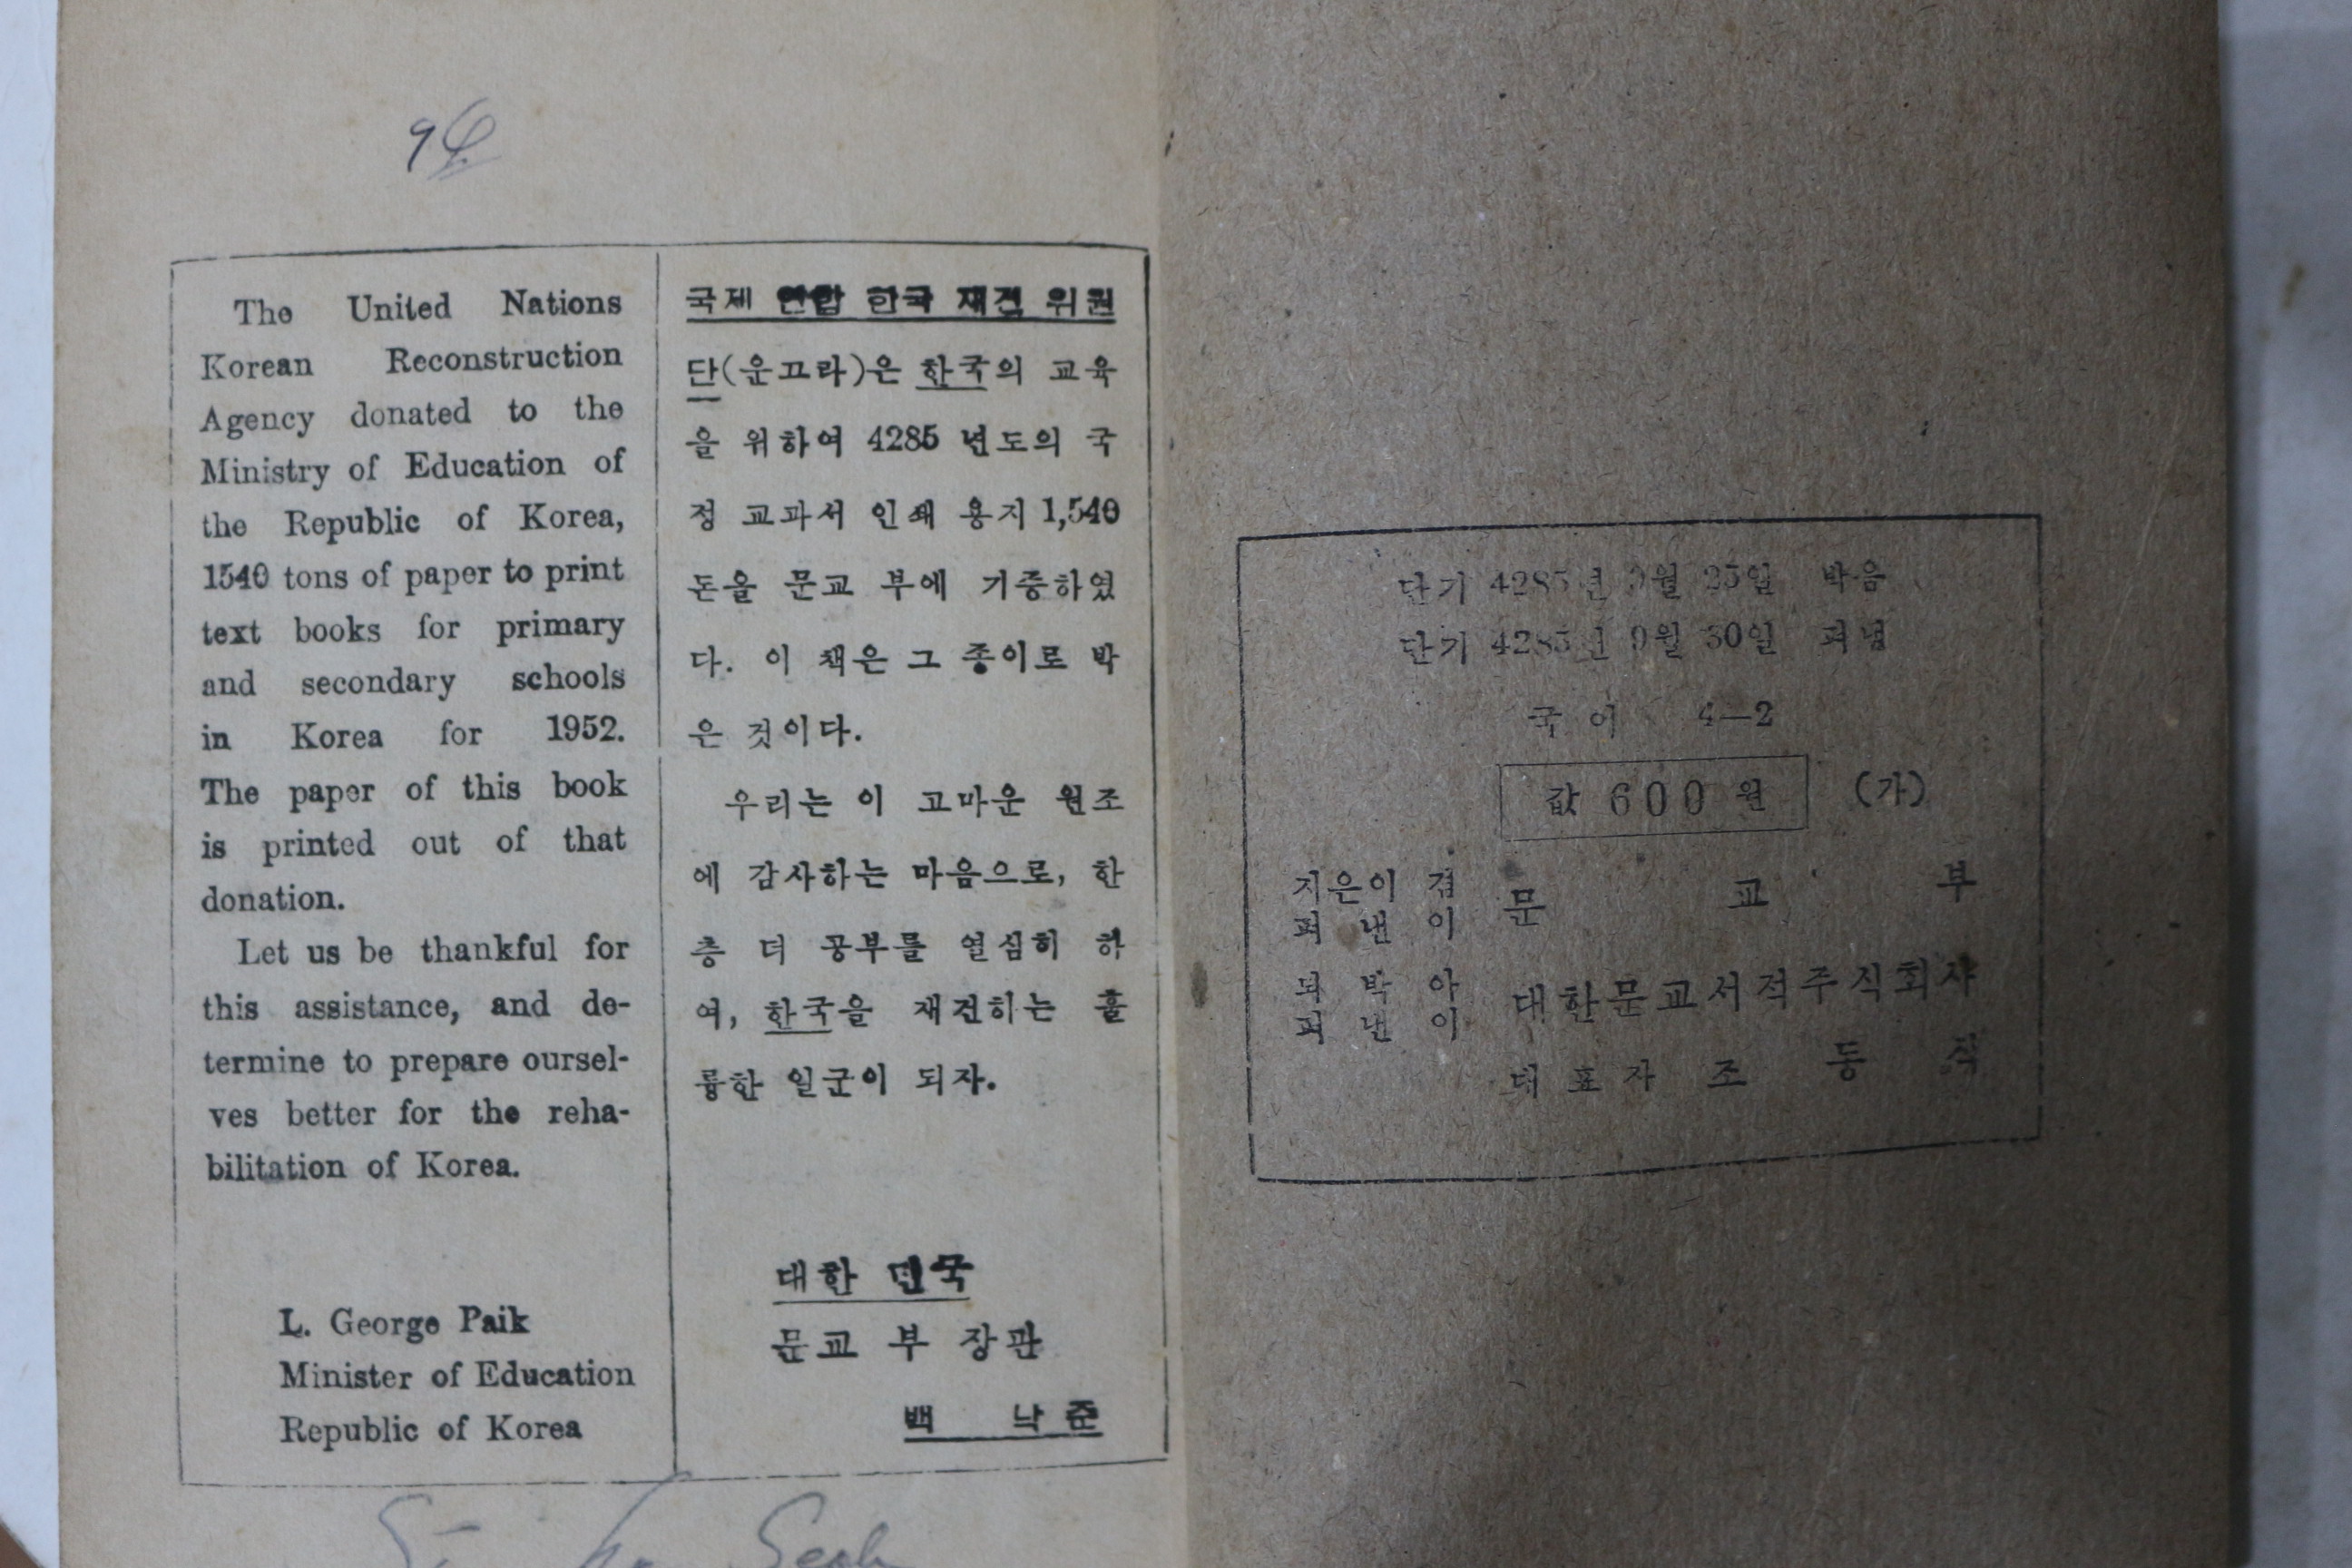 The United Nations
Korean Reconstruction
Agency donated to the
Ministry of Education of
the Republic of Korea,
1540 tons of paper to print
text books for primary
and secondary schools
in Korea for 1952.
The paper of this book
is printed out of that
donation.
Let us be thankful for
this assistance, and de-
termine to prepare oursel-
ves better for the reha-
bilitation of Korea.
L. George Paik
Minister of Education
Republic of Korea
국제 연합 한국 재건 위원
단(운끄라)은 한국의 교육
을 위하여 4285 년도의 국
정 교과서 인쇄 용지 1,540
돈을 문교 부에 기증하였
다. 이 책은 그 종이로 박
은 것이다.
우리는 이 고마운 원조
에 감사하는 마음으로, 한
층 더 공부를 열심히 하
여, 한국을 재건하는 훌
륭한 일군이 되자.
대한 민국
문교 부 장관
백 낙 준
단기 4285년 9월 25일 박음
단기 4285년 9월 30일 펴냄
국 어 4—2
값 600 원 (가)
지은이 겸
펴 낸 이
문 교 부
되 박 아
펴 낸 이
대한문교서적주식회사
대 표 자 조 동 식